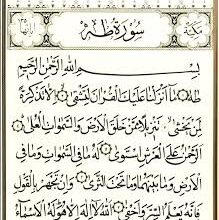 سُورَةُ طه
مكية
بِسْمِ اللهِ الرَّحْمٰنِ الرَّحِيمِ
طه مَا أَنْزَلْنَا عَلَيْكَ الْقُرْآنَ لِتَشْقَى إِلَّا تَذْكِرَةً
لِمَنْ يَخْشَى تَنْزِيلًا مِمَّنْ خَلَقَ الْأَرْضَ وَالسَّمٰوَاتِ الْعُلَى
الرَّحْمٰنُ عَلَى الْعَرْشِ اسْتَوَى لَهُ مَا فِي السَّمٰوَاتِ وَمَا فِي
الْأَرْضِ وَمَا بَيْنَهُمَا وَمَا تَحْتَ الثَّرَى وَإِنْ تَجْهَرْ بِالْقَوْلِ
فَإِنَّهُ يَعْلَمُ السِّرَّ وَأَخْفَى اللهُ لَا إِلٰهَ إِلَّا هُوَ لَهُ الْأَسْمَاءُ